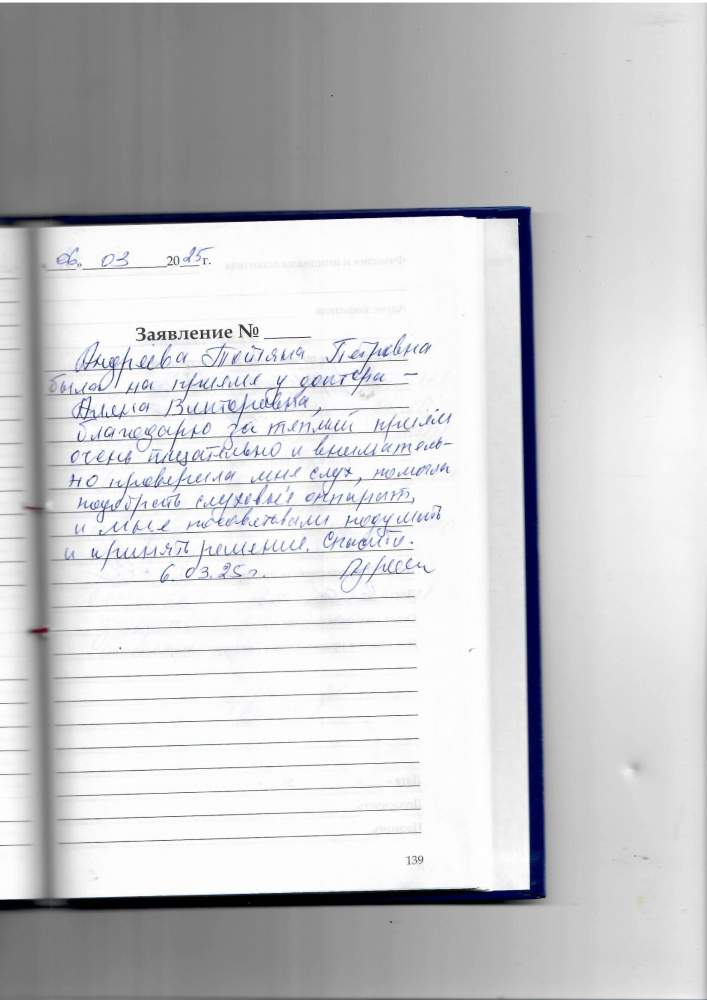 „06" 03 2025 г.
Заявление №
Андреева Татьяна Петровна
была на приеме у доктора –
Алена Викторовна,
благодарю за теплый приём
очень тщательно и вниматель-
но проверила мне слух, помогла
подобрать слуховые аппарат,
и мне посоветовали подумать
и принять решение. Спасибо.
6.03.25г.
139